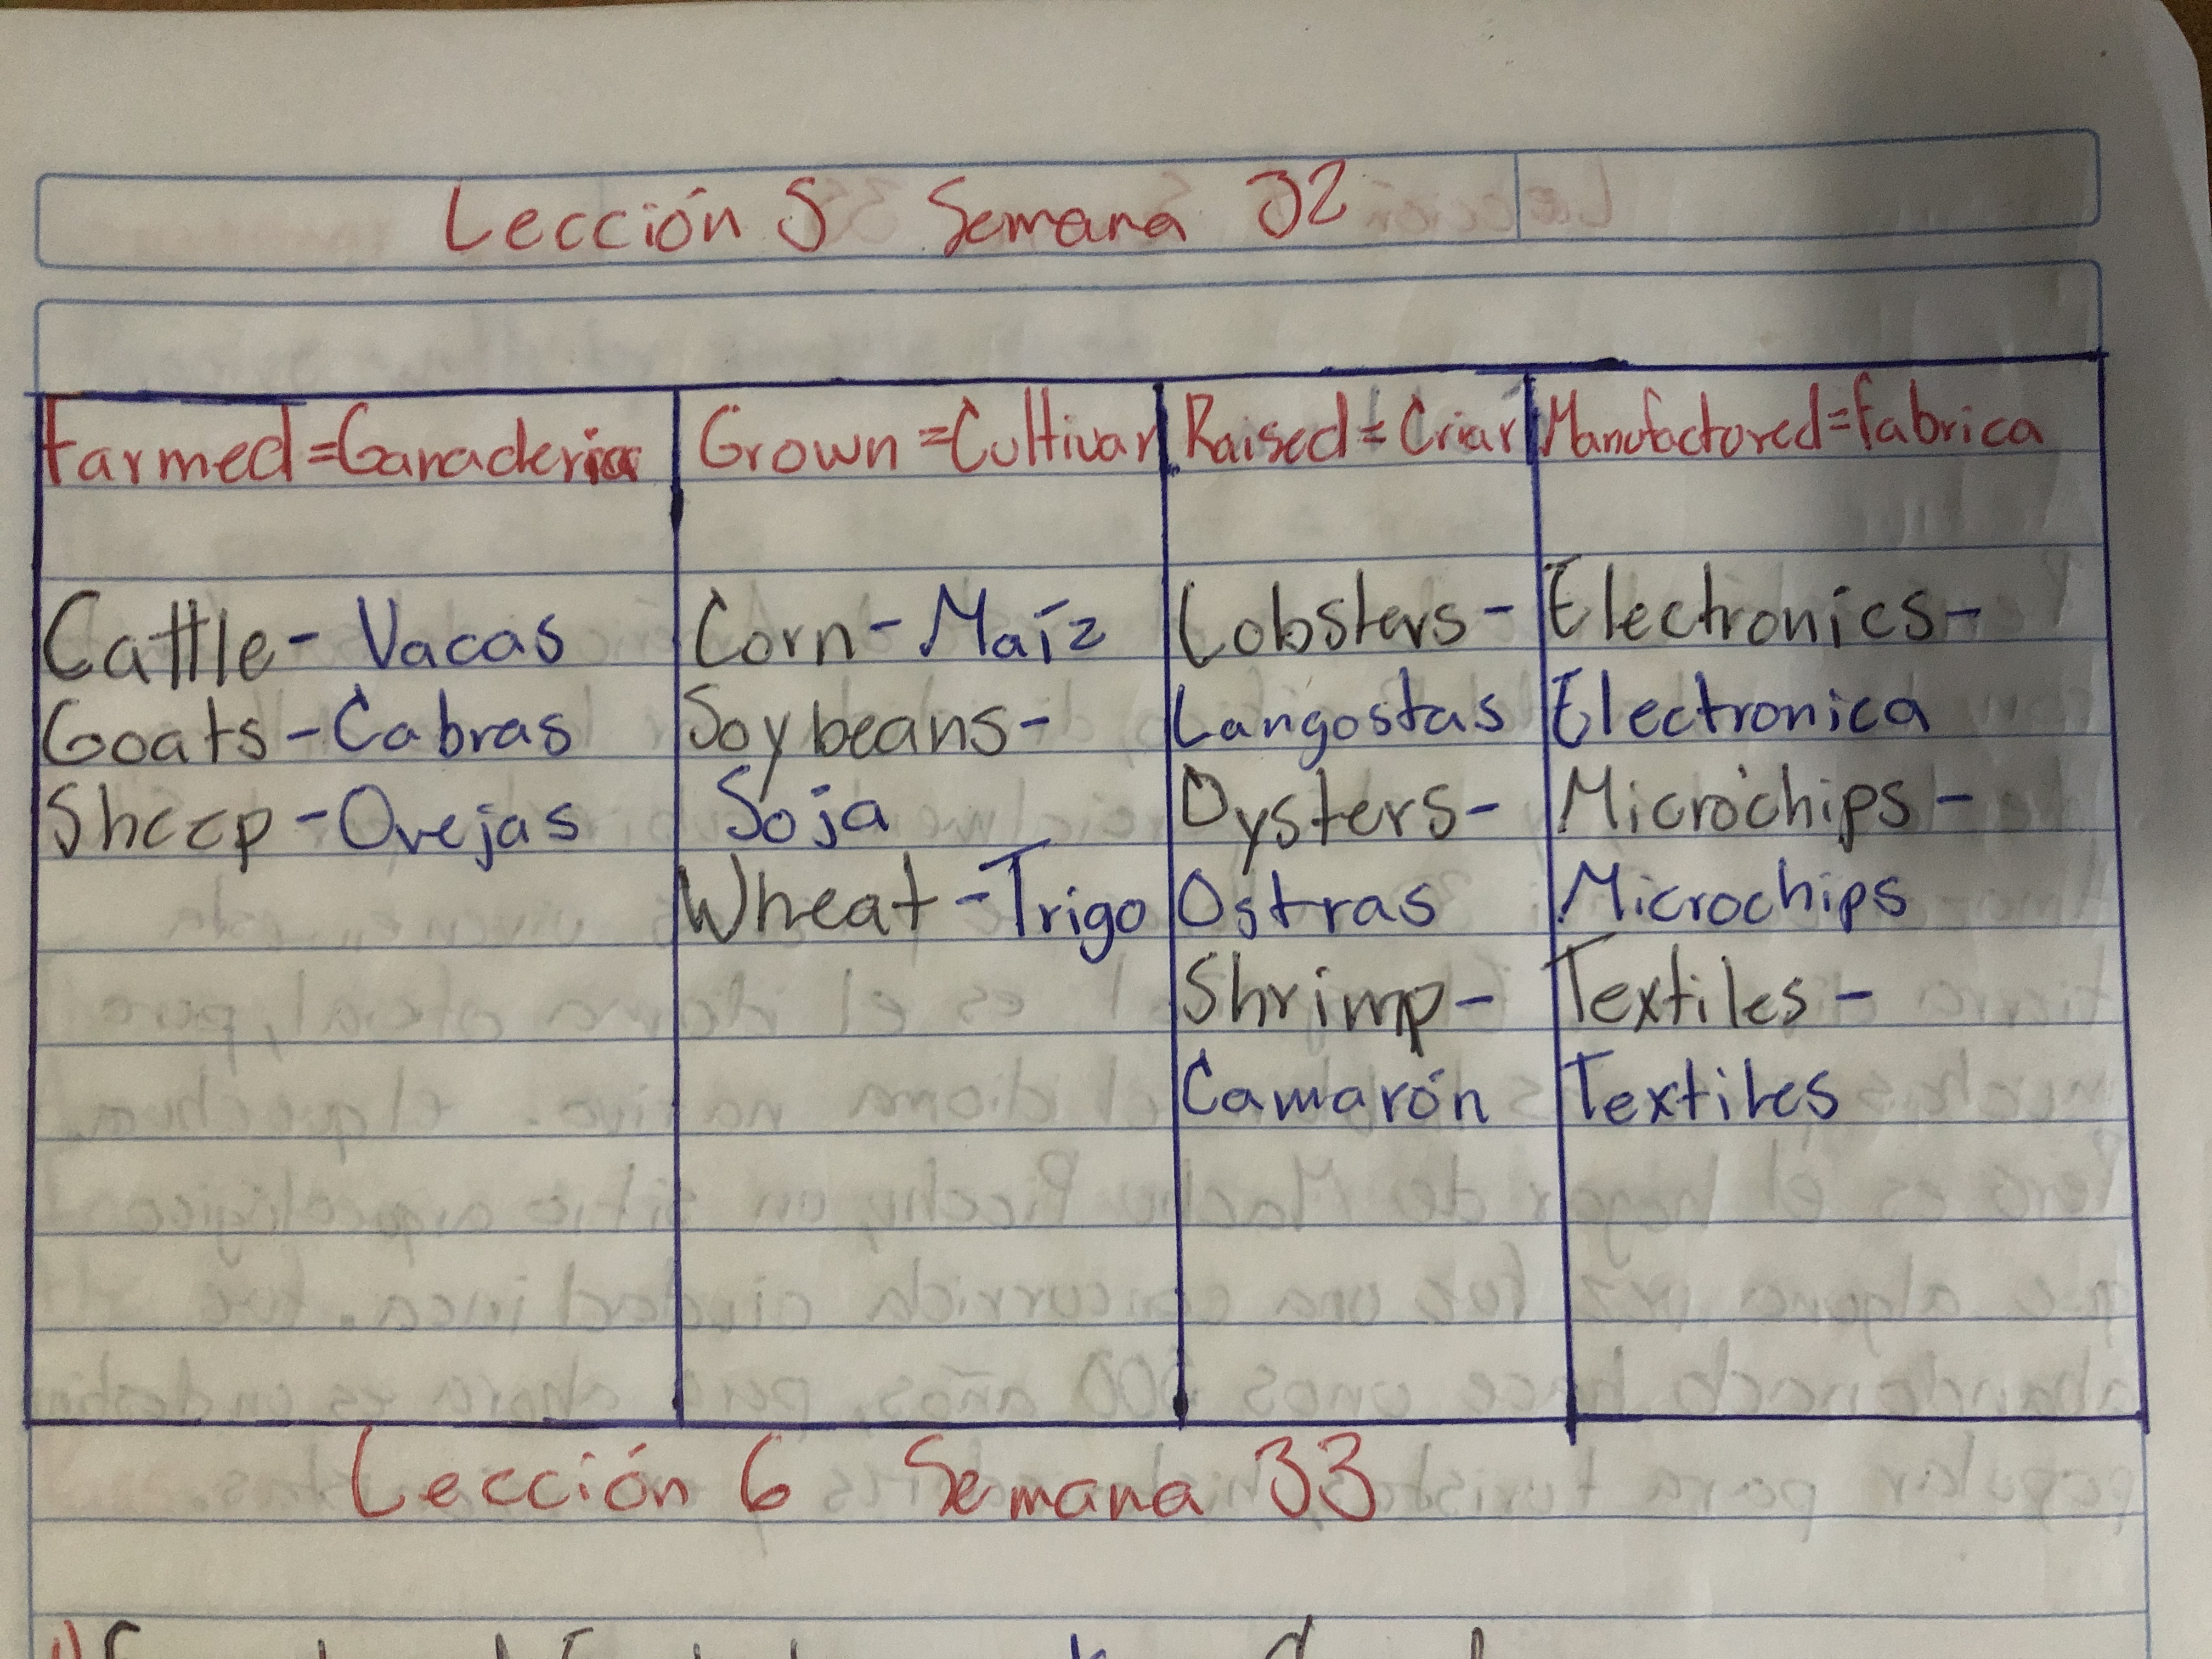 Lección 5 Semana 32
Farmed=Ganaderia
Grown=Cultivar
Raised=Criar
Manufactored=fabrica
Cattle- Vacas
Goats-Cabras
Sheep-Ovejas
Corn-Maíz
Soybeans-
Soja
Wheat-Trigo
Lobsters-
Langostas
Oysters-
Ostras
Shrimp-
Camarón
Electronics-
Electronica
Microchips-
Microchips
Textiles-
Textiles
Lección 6 Semana 33